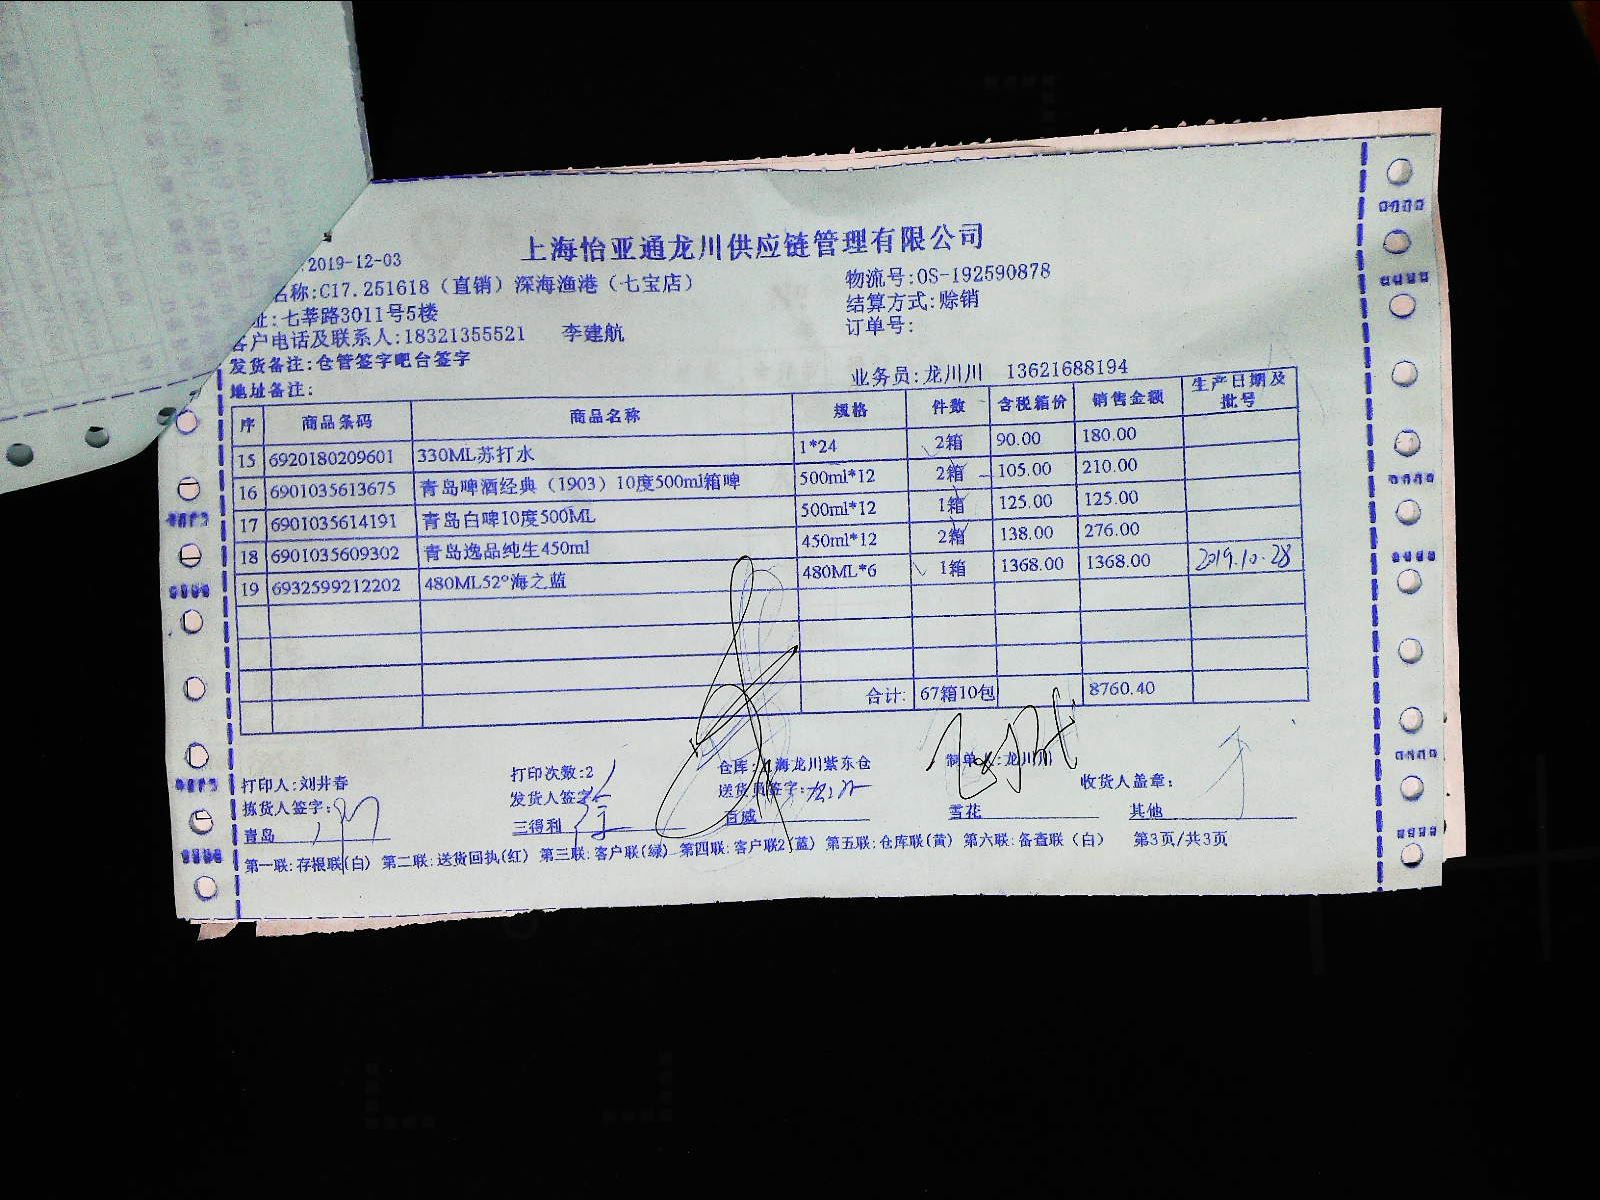 上海怡亚通龙川供应链管理有限公司
:2019-12-03
名称:C17.251618（直销）深海渔港（七宝店） 物流号:OS-192590878
址:七莘路3011号5楼 结算方式:赊销
客户电话及联系人:18321355521 李建航 订单号:
发货备注:仓管签字吧台签字
地址备注: 业务员:龙川川 13621688194
序 商品条码 商品名称 规格 件数 含税箱价 销售金额 生产日期及批号
15 6920180209601 330ML苏打水 1*24 2箱 90.00 180.00
16 6901035613675 青岛啤酒经典（1903）10度500ml箱啤 500ml*12 2箱 105.00 210.00
17 6901035614191 青岛白啤10度500ML 500ml*12 1箱 125.00 125.00
18 6901035609302 青岛逸品纯生450ml 450ml*12 2箱 138.00 276.00
19 6932599212202 480ML52°海之蓝 480ML*6 1箱 1368.00 1368.00 2019.10.28
合计: 67箱10包 8760.40
打印人:刘井春 打印次数:2 仓库:上海龙川紫东仓 制单人:龙川川
拣货人签字: 发货人签字: 送货员签字: 收货人盖章:
青岛 三得利 百威 雪花 其他
第一联:存根联(白) 第二联:送货回执(红) 第三联:客户联(绿) 第四联:客户联2(蓝) 第五联:仓库联(黄) 第六联:备查联（白） 第3页/共3页